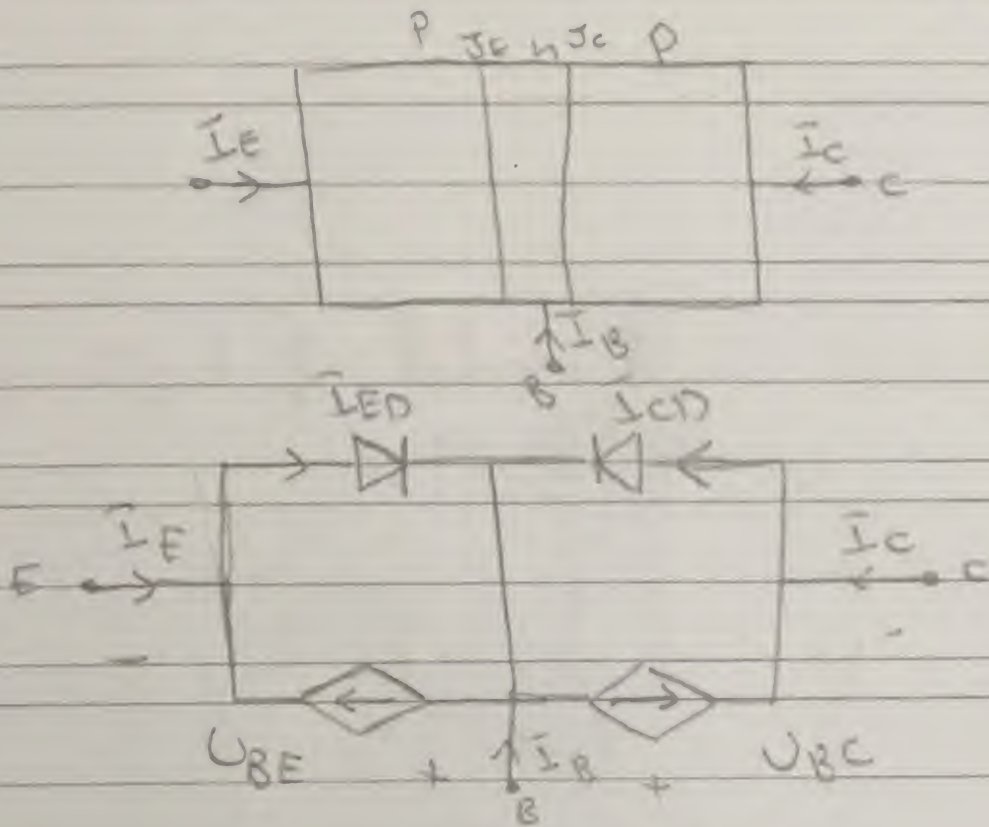 P JE n JC P
IE IC C
IB
B
IED ICD
E IE IC C
- -
UBE + IB + UBC
B